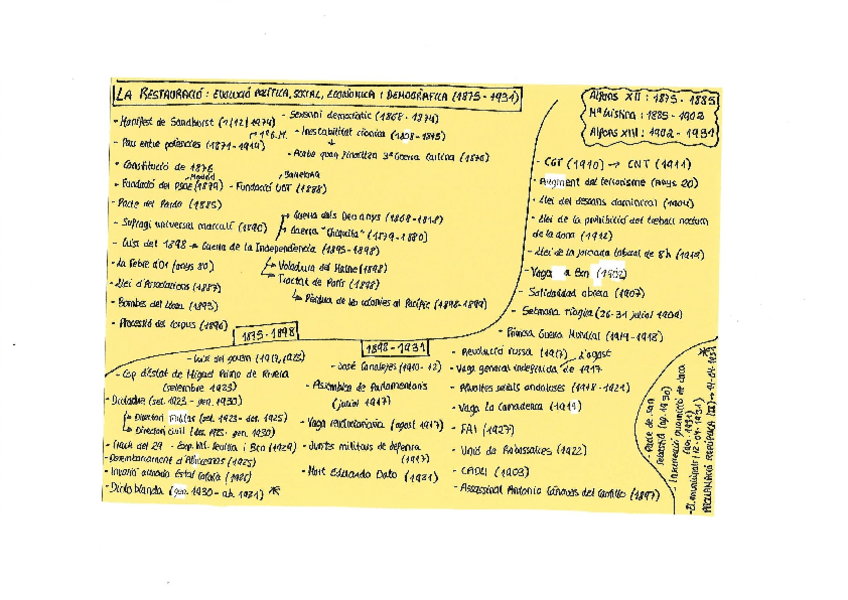 LA RESTAURACIÓ: EVOLUCIÓ POLÍTICA, SOCIAL, ECONÒMICA I DEMOGRÀFICA (1875-1931)
Alfons XII: 1875-1885
Mª Cristina: 1885-1902
Alfons XIII: 1902-1931
- Manifest de Sandhurst (1/12/1974)
- Sexenni democràtic (1868-1874)
→ 1ª G.M.
- Inestabilitat crònica (1808-1875)
- Pau entre potències (1871-1914)
→ Acaba quan finalitza 3ª Guerra Carlina (1876)
- Constitució de 1876
Madrid
- Fundació del PSOE (1879)
Barcelona
- Fundació UGT (1888)
- Pacte del Pardo (1885)
- Sufragi universal masculí (1890)
→ Guerra dels Deu anys (1868-1878)
→ Guerra "Chiquita" (1879-1880)
- Crisi del 1898 → Guerra de la Independència (1895-1898)
- La Febre d'Or (anys 80)
→ Voladura del Maine (1898)
→ Tractat de París (1898)
→ Pèrdua de les colònies al Pacífic (1898-1899)
- Llei d'Associacions (1887)
- Bombes del Liceu (1893)
- Processó del Corpus (1896)
1875-1898
- CGT (1910) → CNT (1911)
- Augment del terrorisme (anys 20)
- Llei del descans dominical (1904)
- Llei de la prohibició del treball nocturn
de la dona (1912)
- Llei de la jornada laboral de 8h (1919)
- Vaga a Bcn (1902)
- Solidaridad obrera (1907)
- Setmana Tràgica (26-31 juliol 1909)
- Primera Guerra Mundial (1914-1918)
1898-1931
- Crisi del govern (1917, 1923)
- Cop d'Estat de Miguel Primo de Rivera
(setembre 1923)
- Dictadura (set. 1923 - gen. 1930)
→ Directori Militar (set. 1923 - des. 1925)
→ Directori civil (des. 1925 - gen. 1930)
- Crack del 29 - Exp. Int. Sevilla i Bcn (1929)
- Desembarcament d'Alhucemas (1925)
- Invasió armada Estat Català (1926)
- Dictablanda (gen. 1930 - ab. 1931) *
- José Canalejas (1910-12)
- Assemblea de Parlamentaris
(juliol 1917)
- Vaga revolucionària (agost 1917)
- Juntes militars de defensa
(1917)
- Mort Eduardo Dato (1921)
- Revolució russa (1917)
- Vaga general indefinida d'agost de 1917
- Revoltes rurals andaluses (1918-1921)
- Vaga La Canadenca (1919)
- FAI (1927)
- Unió de Rabassaires (1922)
- CADCI (1903)
- Assassinat Antonio Cánovas del Castillo (1897)
*
- Pacte de San
Sebastià (ag. 1930)
- Insurrecció guarnició de Jaca
- El. municipals (12-04-1931)
PROCLAMACIÓ REPÚBLICA (II) → 14-04-1931